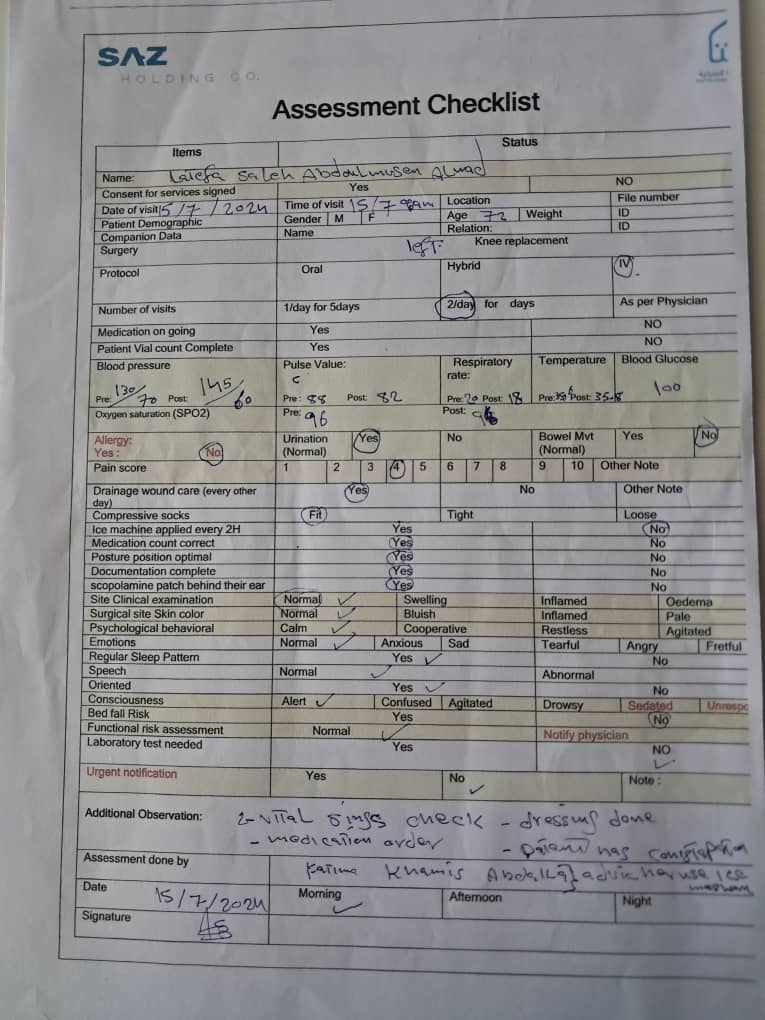 SAZ
HOLDING CO.
Assessment Checklist
Items Status
Name: Latefa Saleh Abdoulmusen
Consent for services signed Yes NO
Date of visit 15/7/2024 Time of visit 15/7 Location File number
Patient Demographic Gender M F Age 72 Weight ID
Companion Data Name Relation: ID
Surgery left. Knee replacement
Protocol Oral Hybrid IV
Number of visits 1/day for 5days 2/day for days As per Physician
Medication on going Yes NO
Patient Vial count Complete Yes NO
Blood pressure Pulse Value: Respiratory rate: Temperature Blood Glucose
Pre: 130/70 Post: 145/60 Pre: 88 Post: 82 Pre: 20 Post: 18 Pre: Post: 35.8 100
Oxygen saturation (SPO2) Pre: 96 Post:
Allergy: Yes : No Urination (Normal) Yes No Bowel Mvt (Normal) Yes No
Pain score 1 2 3 4 5 6 7 8 9 10 Other Note
Drainage wound care (every other day) Yes No Other Note
Compressive socks Fit Tight Loose
Ice machine applied every 2H Yes No
Medication count correct Yes No
Posture position optimal Yes No
Documentation complete Yes No
scopolamine patch behind their ear Yes No
Site Clinical examination Normal ✓ Swelling Inflamed Oedema
Surgical site Skin color Normal ✓ Bluish Inflamed Pale
Psychological behavioral Calm ✓ Cooperative Restless Agitated
Emotions Normal ✓ Anxious Sad Tearful Angry Fretful
Regular Sleep Pattern Yes ✓ No
Speech Normal ✓ Abnormal
Oriented Yes ✓ No
Consciousness Alert ✓ Confused Agitated Drowsy Sedated Unrespo
Bed fall Risk Yes No
Functional risk assessment Normal ✓ Notify physician
Laboratory test needed Yes NO ✓
Urgent notification Yes No ✓ Note :
Additional Observation: vital sings check - dressing done
- medication order - patient has
Assessment done by Fatima Khamis
Date 15/7/2024 Morning ✓ Afternoon Night
Signature